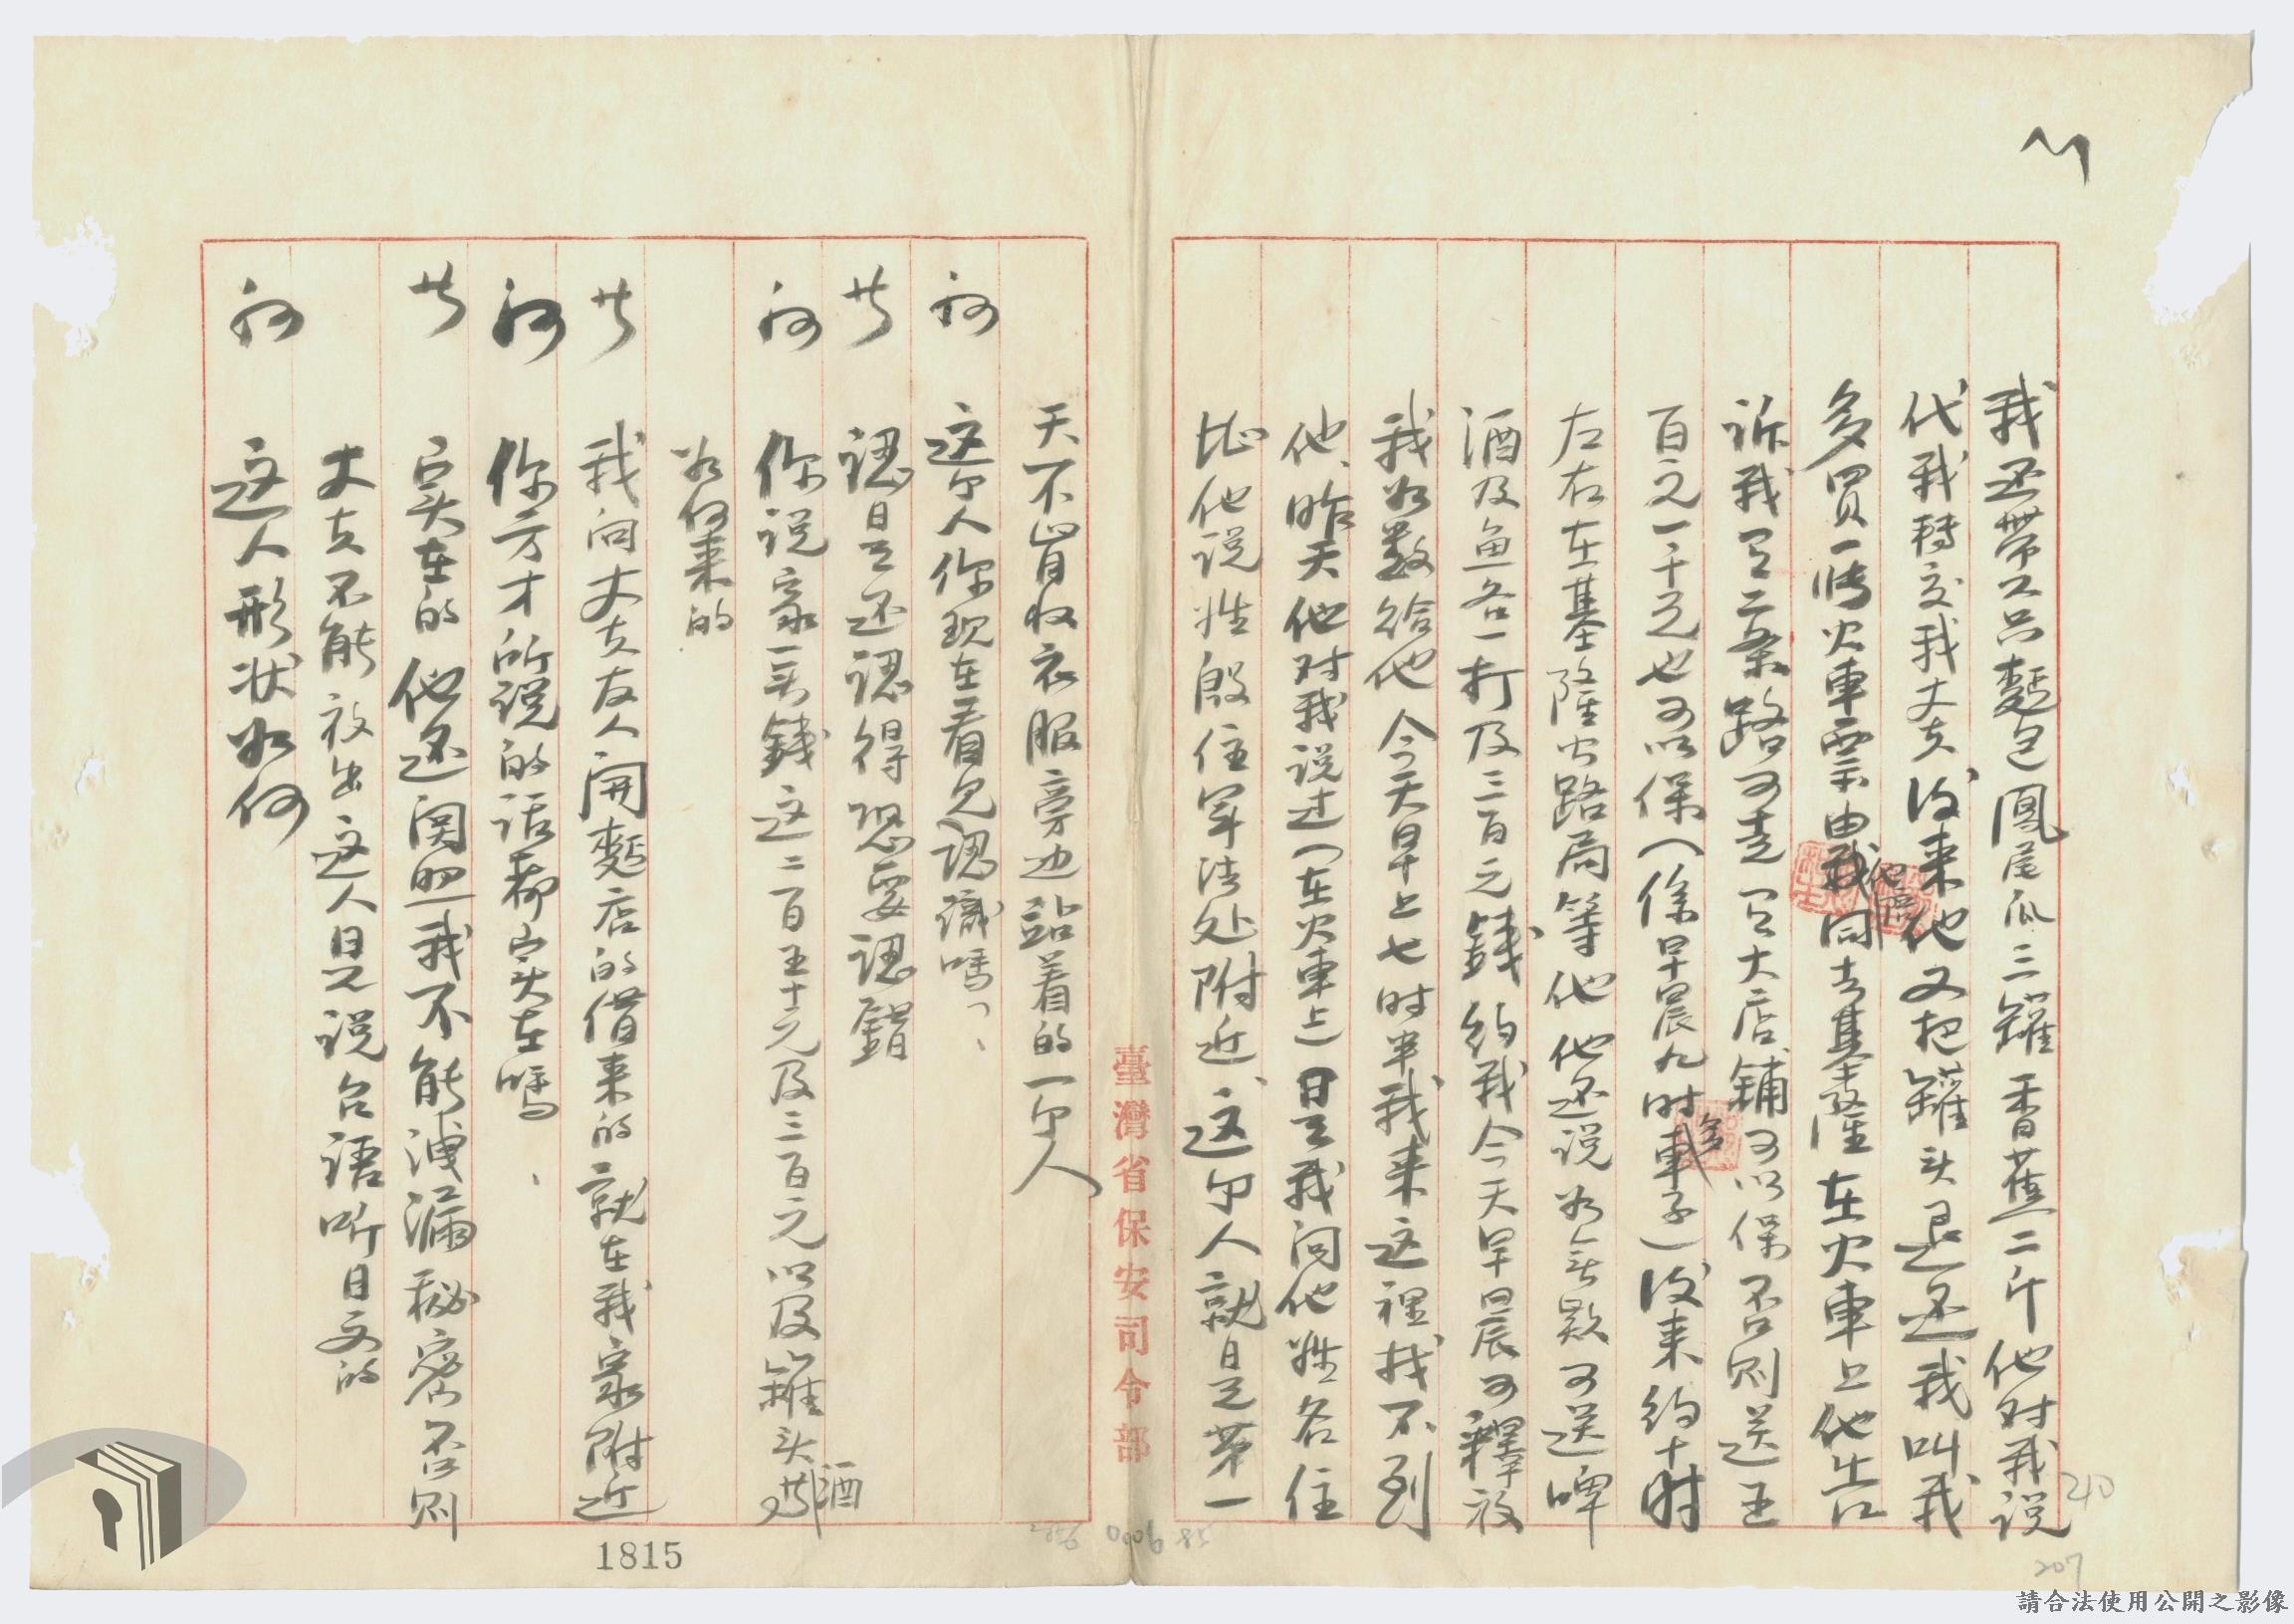 我还帶了只麵包鳳尾瓜三罐香蕉二斤他对我说
代我轉交我丈夫后来他又把罐头退还我叫我
多買一張火車票由他陪同去基隆在火車上他告
诉我有二条路可走有大店舖可以保否则送五
百元一千元也可以保(像早晨九时多車子)后来约十时
左右在基隆公路局等他他还说如無款可送啤
酒及鱼各一打及三百元錢约我今天早晨可釋放
我如数给他今天早上七时半我来这裡找不到
他、昨天他对我说过(在火車上)是我问他姓名住
址他说姓殷住军法处附近、这个人就是第一
天不肯收衣服旁边站着的一个人
问 这个人你现在看见認識嗎、
答 認是还認得恐要認錯
问 你说家一共錢这二百五十元及三百元以及罐头酒
如何来的
答 我向丈夫友人開麵店的借来的就在我家附近
问 你方才所说的话都实在嗎、
答 实在的他还関照我不能洩漏秘密否则
丈夫不能放出这人是说台語听日文的
问 这人形状如何
臺灣省保安司令部
1815
210
207
請合法使用公開之影像